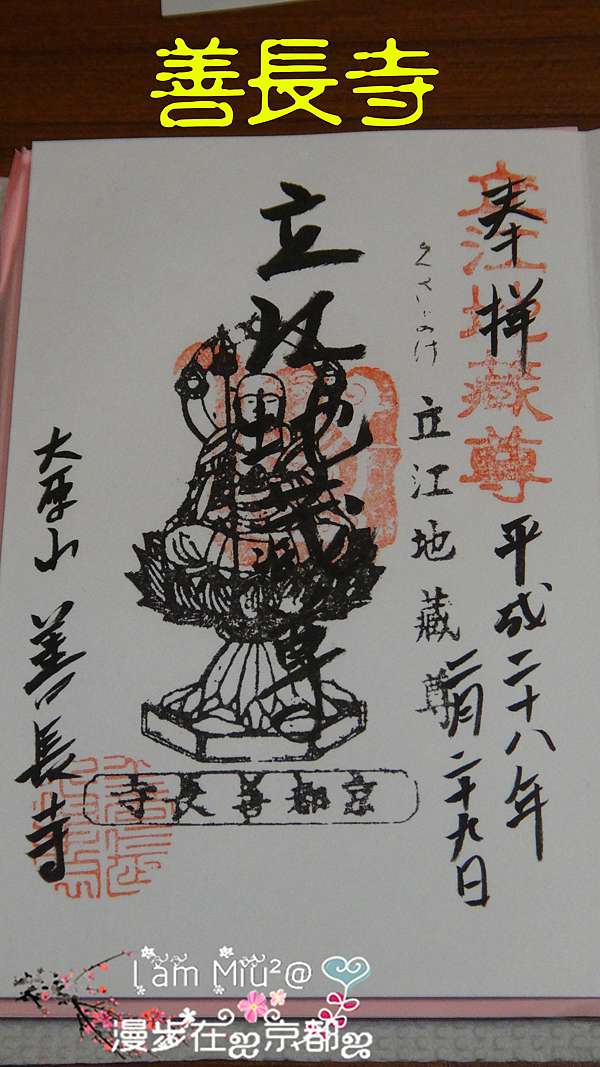 善長寺
立江地藏尊
奉拝
平成二十八年
二月二十九日
立江地藏尊
立江地蔵尊
京都善長寺
大原山 善長寺
Lam Miu²@
漫步在 京都